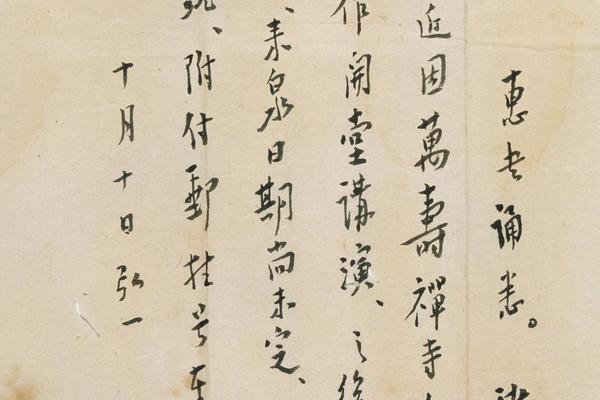 惠書誦悉。
近因萬壽禪寺
作開堂講演、之後
、來泉日期尚未定、
附付郵挂号
十月十日 弘一